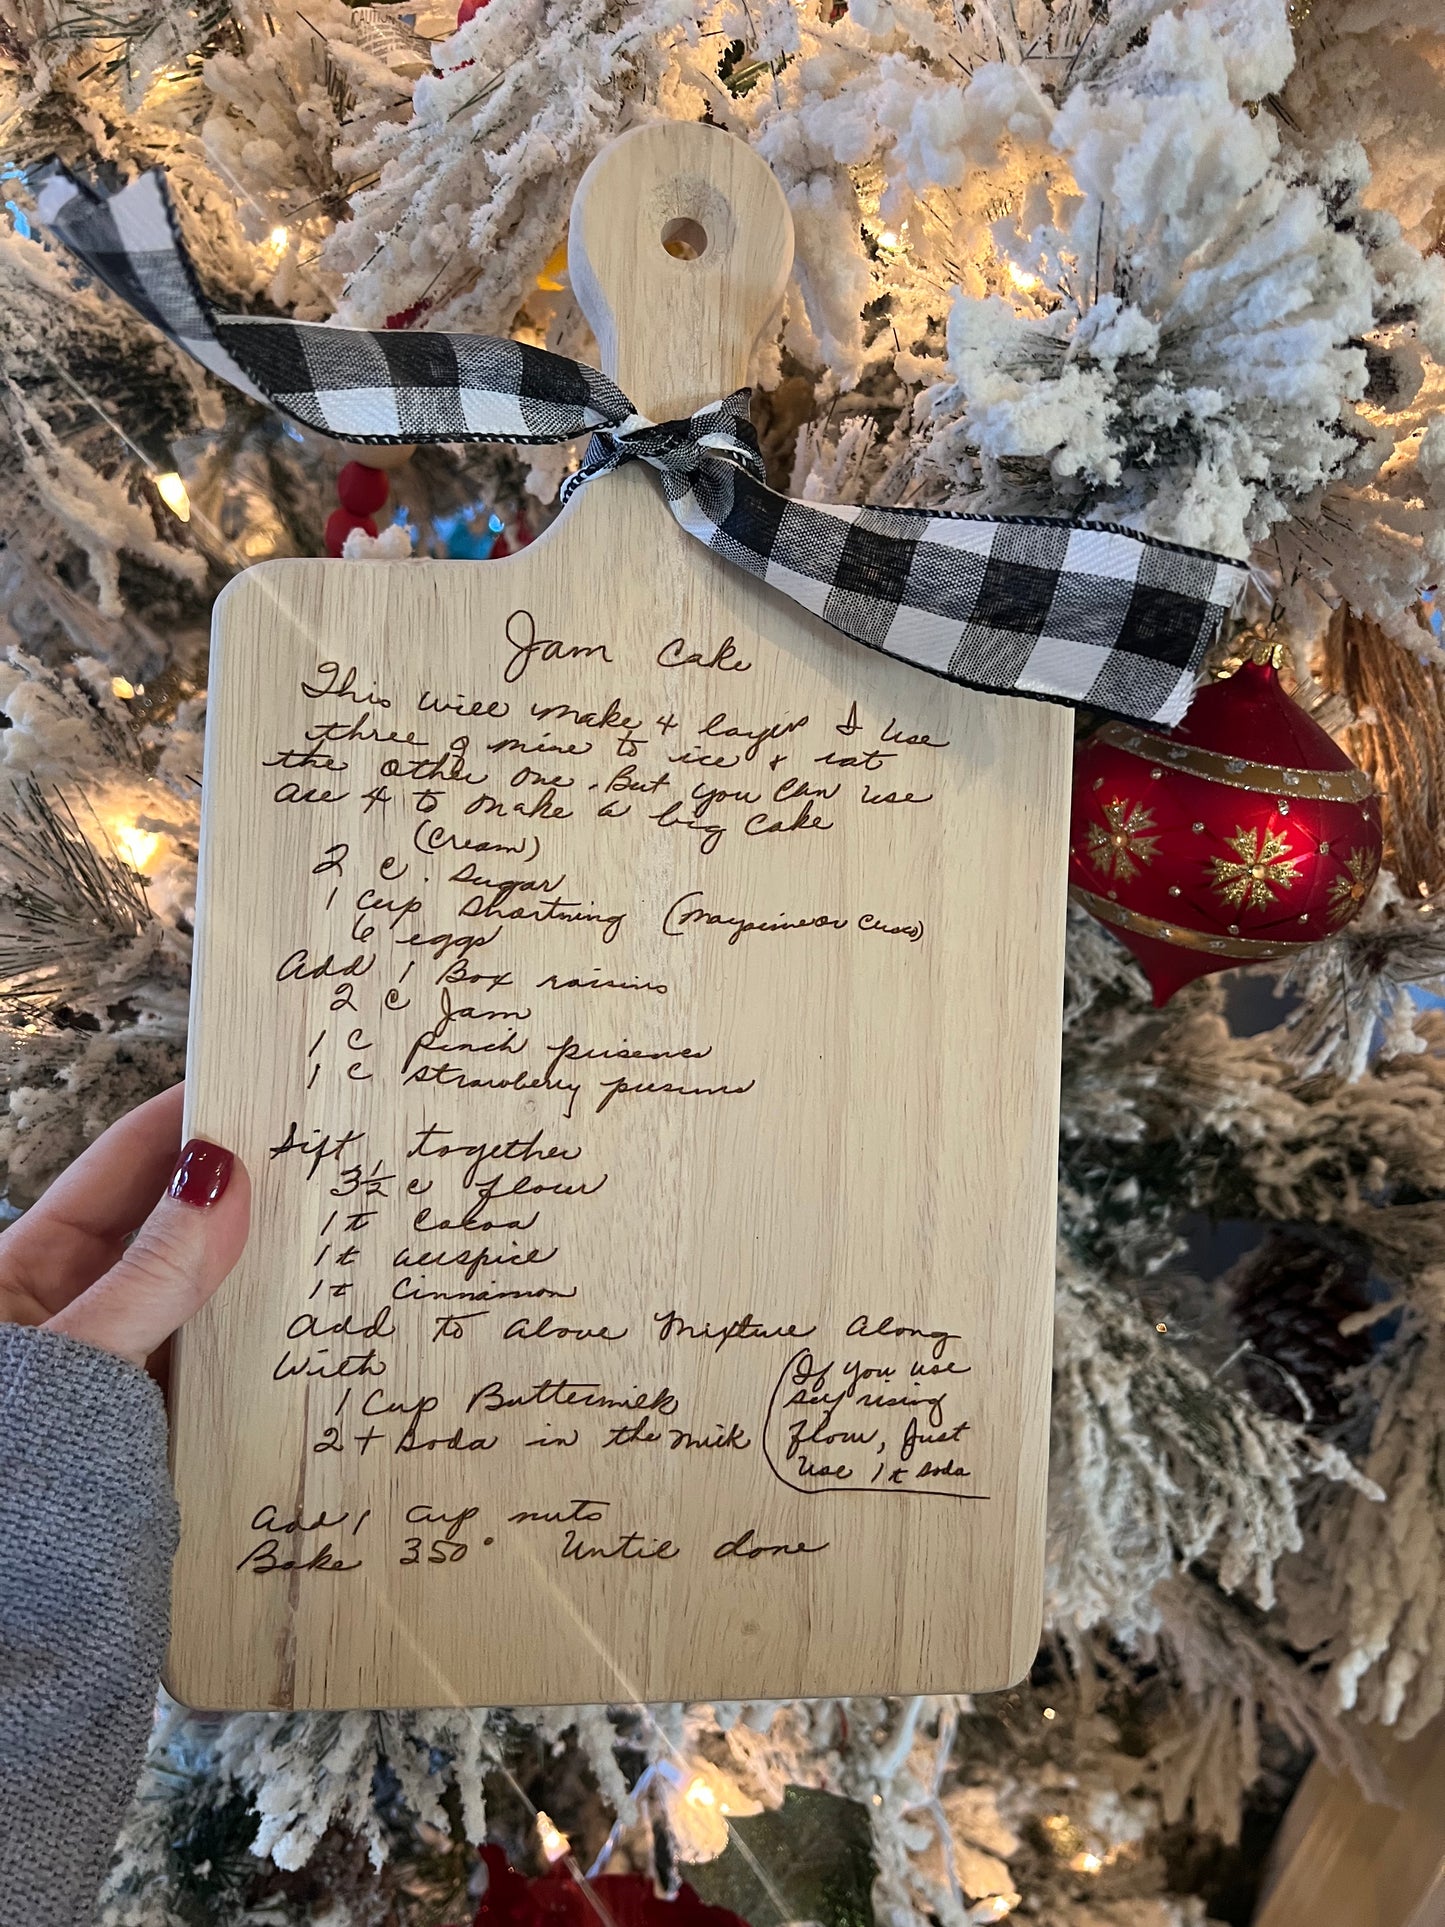 CAUTION
Jam Cake
This will make 4 layers I use
three of mine to ice & eat
the other one. But you can use
all 4 to make a big cake
(Cream)
2 c. sugar
1 cup shortning (maysine or Crisco)
6 eggs
Add 1 Box raisins
2 c Jam
1 c Peach preserves
1 c strawberry preserves
Sift together
3½ c flour
1 t Cocoa
1 t allspice
1 t Cinnamon
Add to above mixture along
with
1 Cup Buttermilk
2 t soda in the milk
(If you use
self rising
flour, just
use 1 t soda
Add 1 cup nuts
Bake 350° Until done